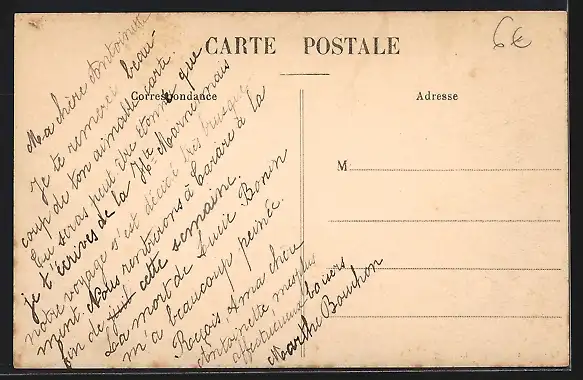 CARTE POSTALE
Correspondance
Adresse
M
6€
Ma chère Antoinette
Je te remercie beau
coup de ton aimable carte.
Tu seras peut être étonné que
je t'écrives de la Hte Marne mais
notre voyage s'est décidé très brusque
ment. Nous rentrerons à Tarare à la
fin de juil cette semaine.
La mort de Lucie Bonin
m'a beaucoup peinée.
Reçois ma chère
Antoinette mes plus
affectueux baisers
Marthe Bouchon